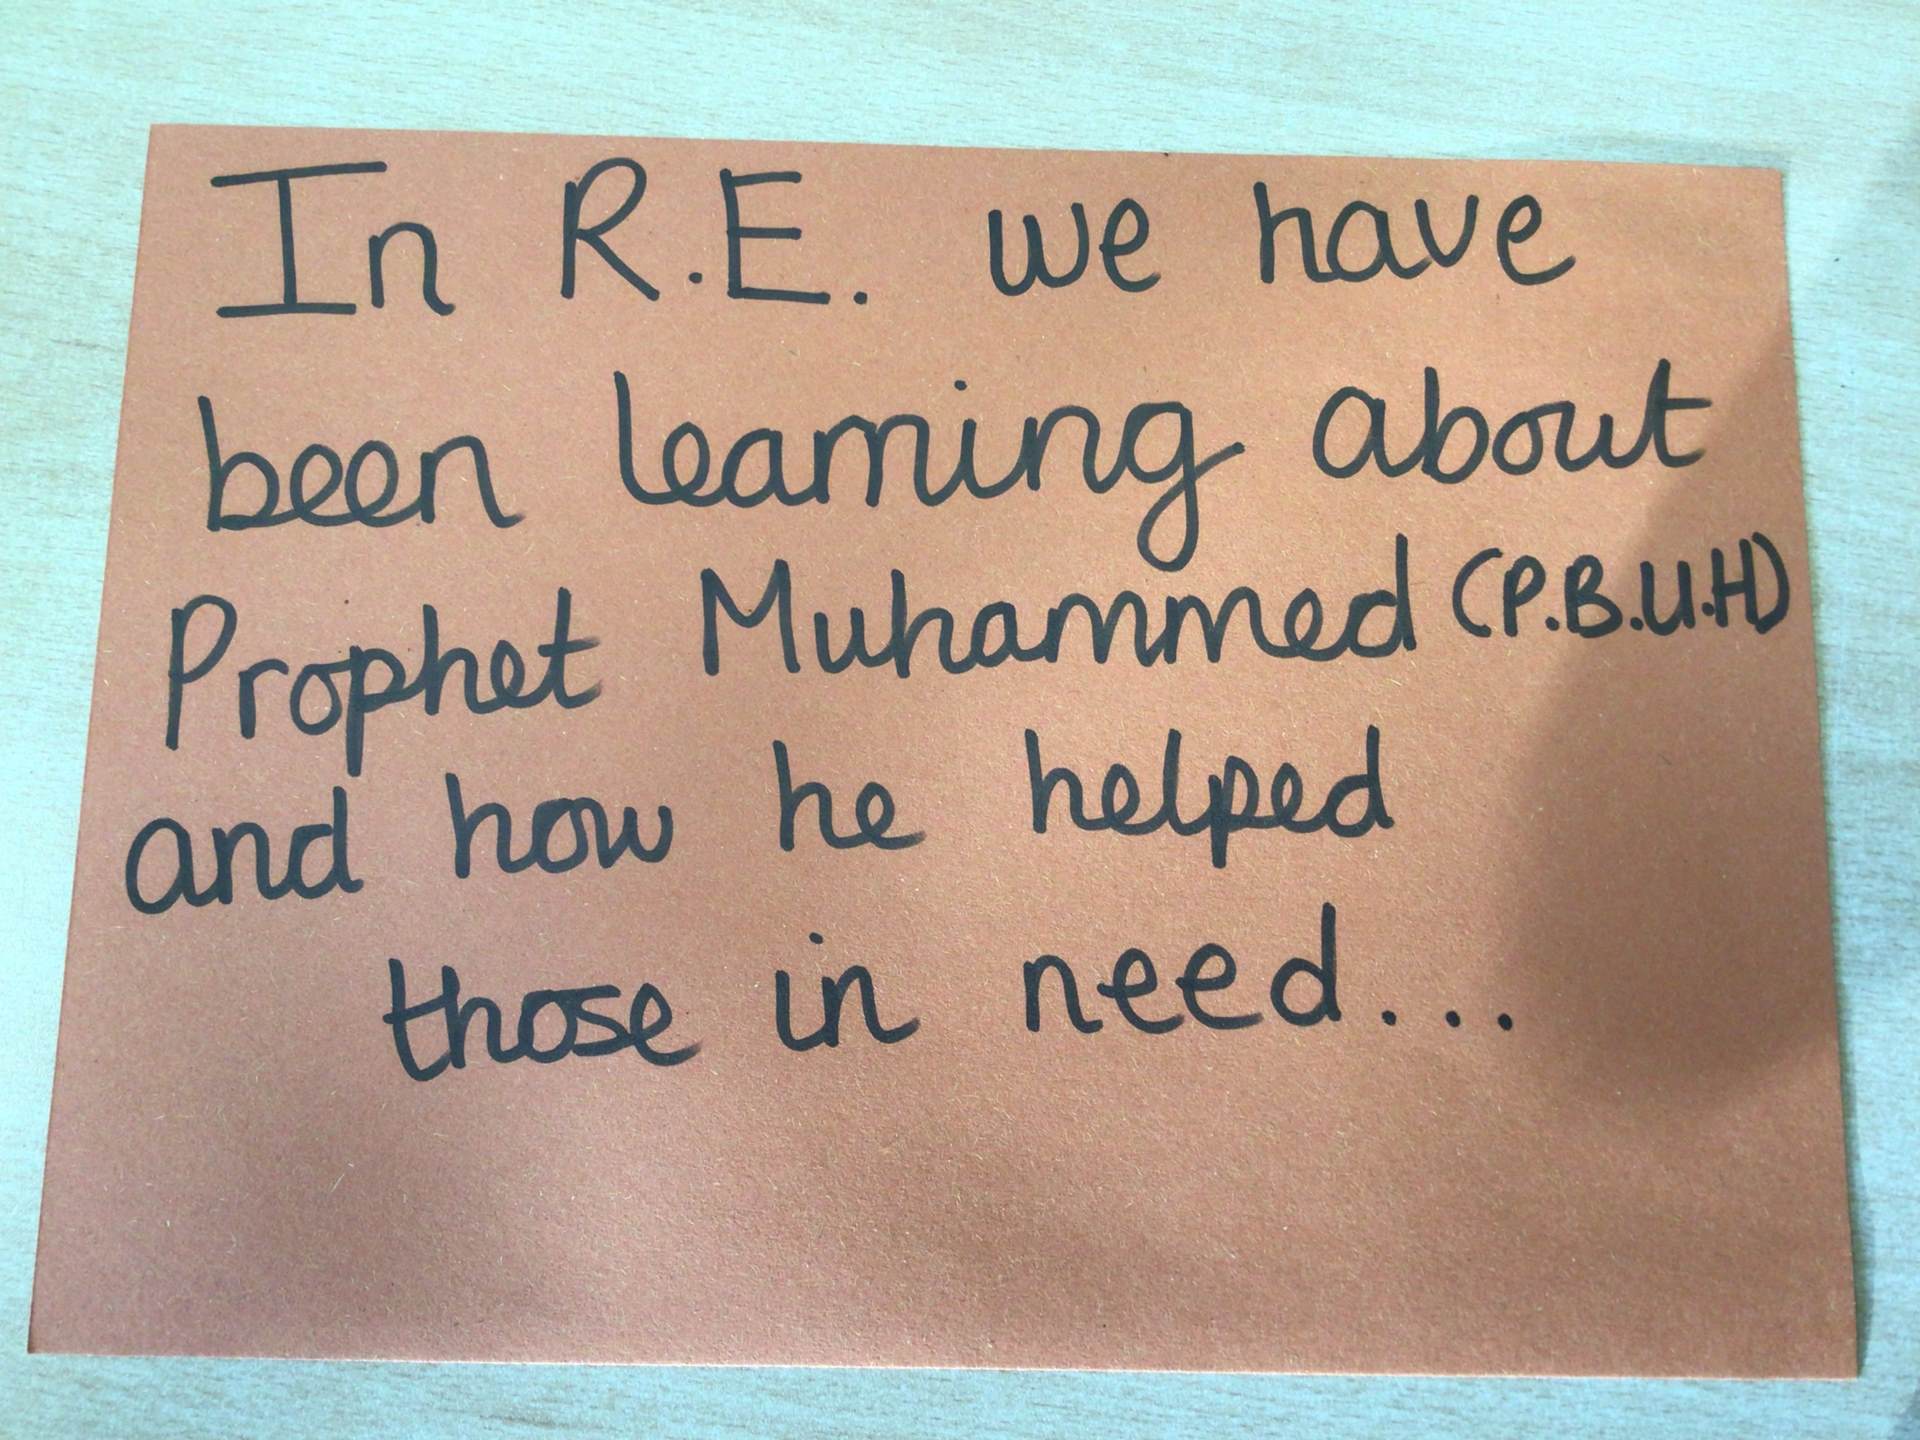 In R.E. we have
been learning about
Prophet Muhammed (P.B.U.H)
and how he helped
those in need...